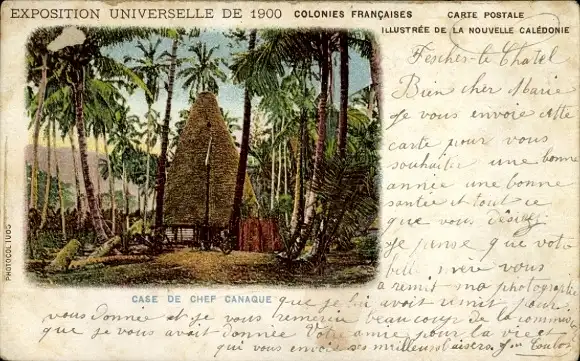 EXPOSITION UNIVERSELLE DE 1900 COLONIES FRANÇAISES CARTE POSTALE
ILLUSTRÉE DE LA NOUVELLE CALÉDONIE
Fesches-le Chatel
Bien cher Marie
je vous envoie cette
carte pour vous
souhaiter une bonne
année une bonne
santée et tout ce
que vous désirez
je pense que votre
mère vous
a remit ma photographie
que je lui avait remit pour
vous donnée et je vous remerci beaucoup de la
que je vous avait donnée Votre amie pour la vie et
qui vous envois ses meilleurs baisers
CASE DE CHEF CANAQUE
PHOTOCOL TUOS